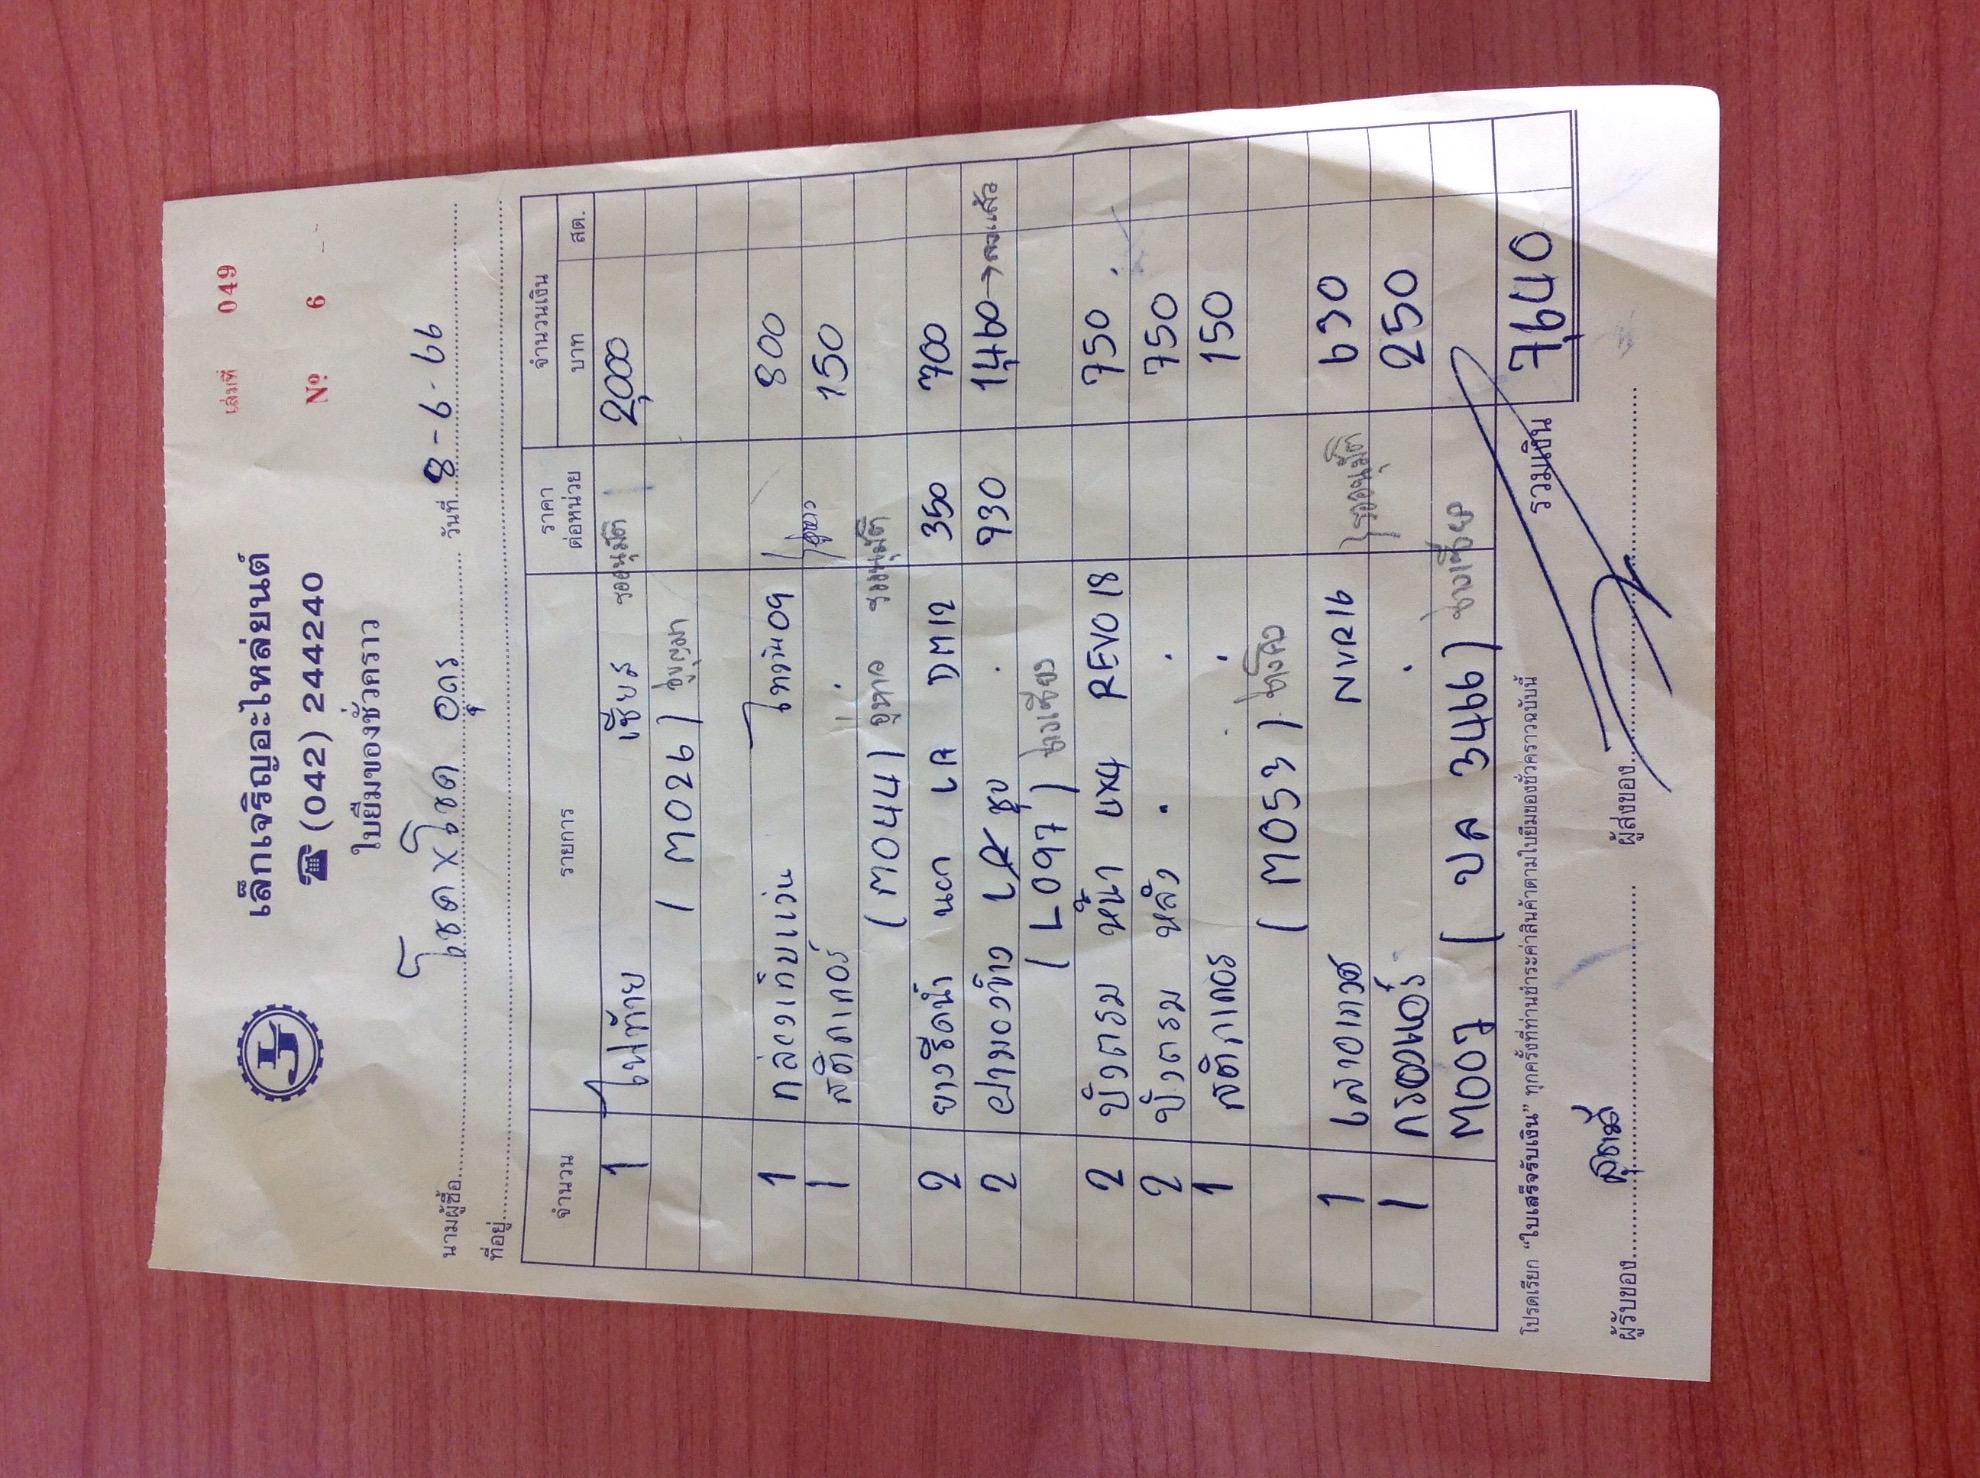 เล็กเจริญอะไหล่ยนต์
เล่มที่ 049
☎ (042) 244240
ใบยืมของชั่วคราว
Nº 6
นามผู้ซื้อ โชค x โชค อุดร วันที่ 8-6-66
ที่อยู่
จำนวน รายการ ราคาต่อหน่วย จำนวนเงิน
บาท สต.
1 ไฟท้าย รออนุมัติ 2,000
( M026 )
1 กล่องเก็บแว่น ไททัน 09 800
1 สติกเกอร์ 150
( M044 ) รออนุมัติ
2 ยางรีดน้ำ LR DM12 350 700
2 ฝามองข้าง LR ชุบ 730 1,460 → ลงแล้ว
( L097 )
2 บังตรม หน้า 4x4 REVO 18 750
2 บังตรม หลัง 750
1 สติกเกอร์ 150
( M053 )
1 สายเกวส NVR16 630
1 กรองแอร์ รออนุมัติ 250
M007 ( บล 3466 )
รวมเงิน 7,640
โปรดเรียก “ใบเสร็จรับเงิน” ทุกครั้งที่ท่านชำระค่าสินค้าตามใบยืมของชั่วคราวฉบับนี้
ผู้รับของ ผู้ส่งของ